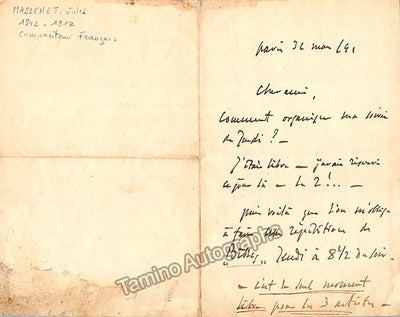 MASSENET. Jules
1842 - 1912
Compositeur Français
Paris 31 mars /91
Cher ami,
Comment organiser ma soirée
de Jeudi ? -
J'étais libre - j'avais réservé
ce jour là - le 2 !.. -
puis voilà que l'on m'oblige
à faire répétition de
Jeudi à 8 1/2 du soir -
- c'est le seul moment
libre pour les 3 artistes -
Tamino Autographs